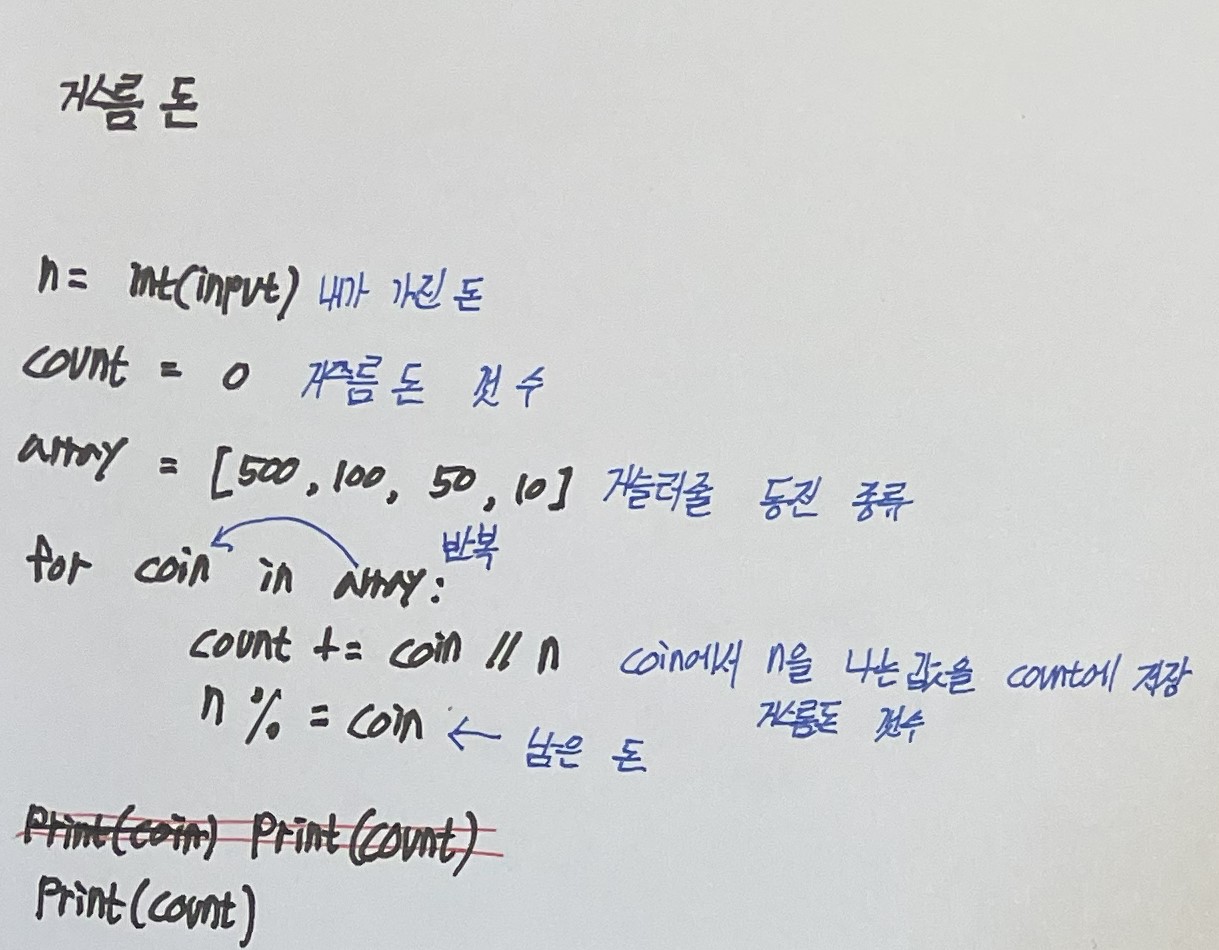 거스름 돈
n = int(input) 내가 가진 돈
count = 0 거스름 돈 것 수
array = [500, 100, 50, 10] 거슬러줄 동전 종류
for coin in array: 반복
count += coin // n coin에서 n을 나눈 값을 count에 저장
거스름돈 것수
n % = coin ← 남은 돈
Print(coin) Print(count)
Print(count)